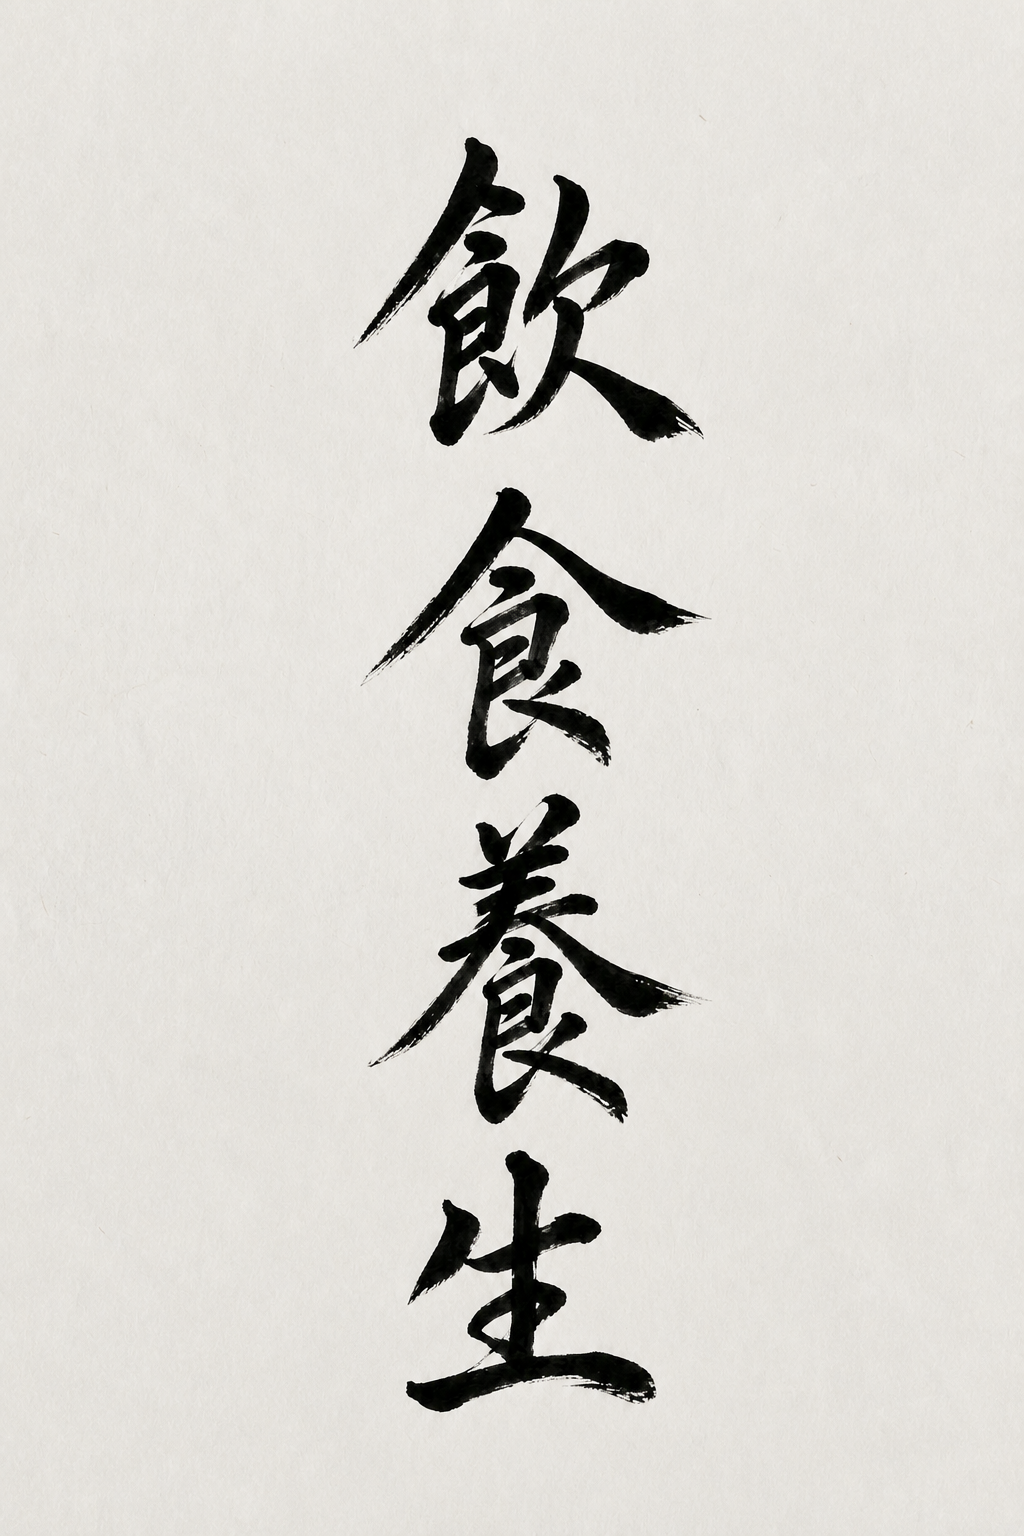 飲食養生